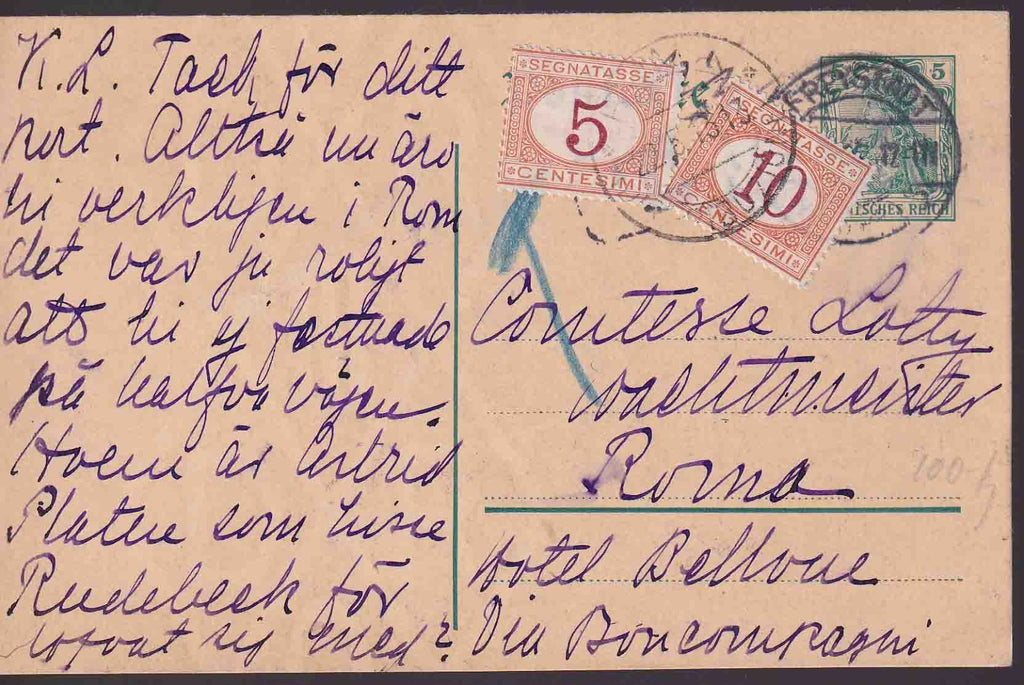 K. L. Tack för ditt
kort. Alltså nu äro
ni verkligen i Rom
det var ju roligt
att ni ej fastnade
på halfva vägen.
Hvem är Astrid
Platen som Lisse
Rudebeck för
lofvat sig med?
SEGNATASSE
5
CENTESIMI
SEGNATASSE
10
CENTESIMI
5
DEUTSCHES REICH
Comtesse Lotty
Wachtmeister
Roma
Hotel Bellvue
Via Boncompagni
100-